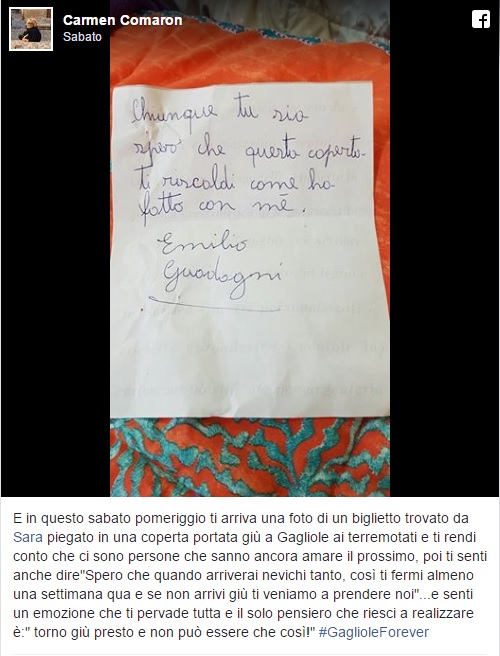 Carmen Comaron
Sabato
Chiunque tu sia
spero che questa coperta
ti riscaldi come ha
fatto con mē.
Emilio
Guadagni
E in questo sabato pomeriggio ti arriva una foto di un biglietto trovato da
Sara piegato in una coperta portata giù a Gagliole ai terremotati e ti rendi
conto che ci sono persone che sanno ancora amare il prossimo, poi ti senti
anche dire"Spero che quando arriverai nevichi tanto, così ti fermi almeno
una settimana qua e se non arrivi giù ti veniamo a prendere noi"...e senti
un emozione che ti pervade tutta e il solo pensiero che riesci a realizzare
è:" torno giù presto e non può essere che così!" #GaglioleForever